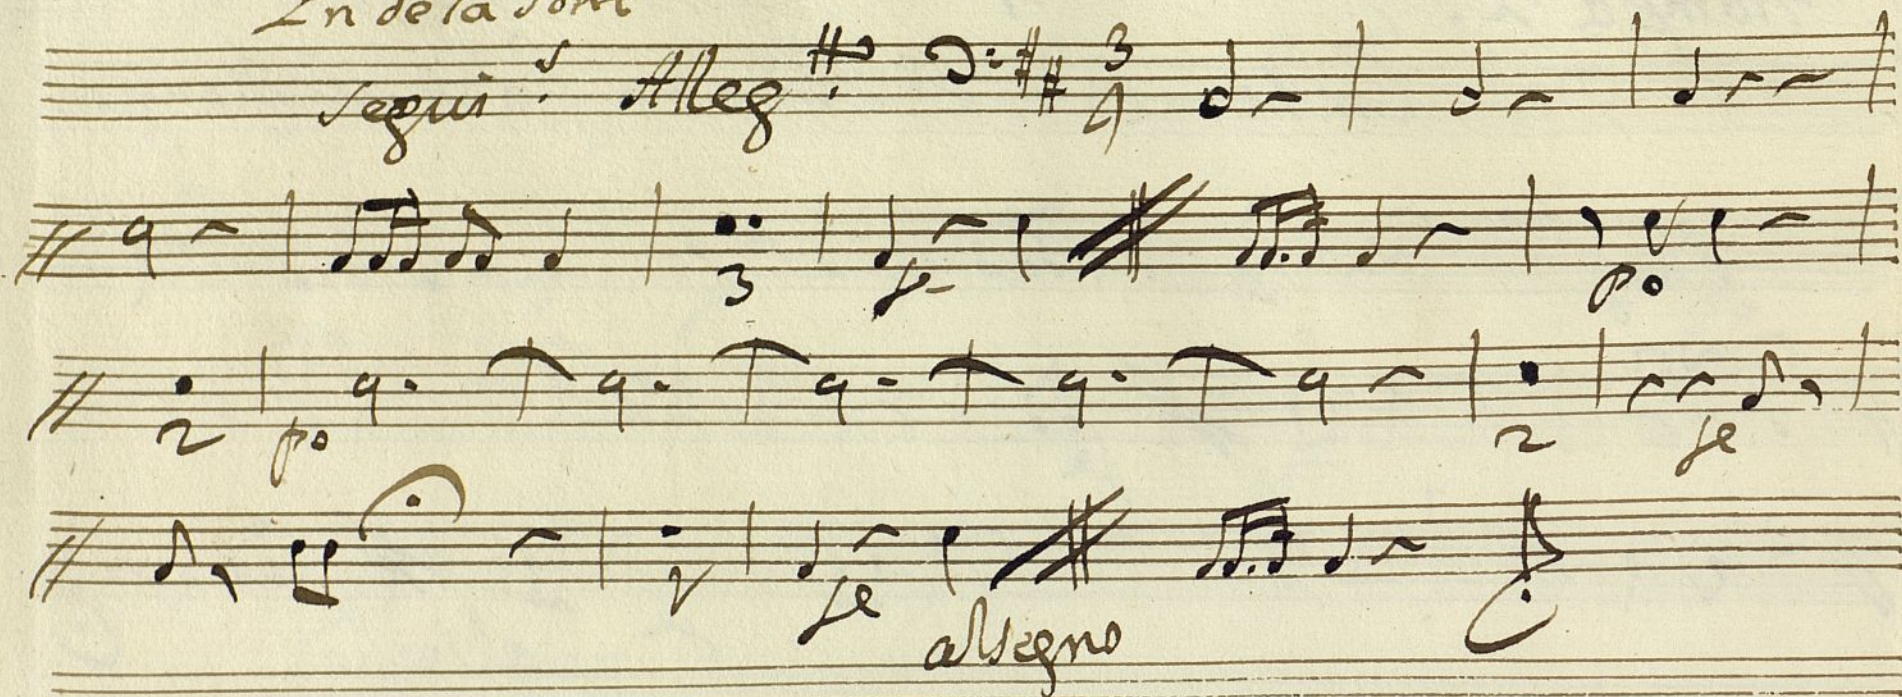 En de la Tont
segui.s Alleg.º 3 4
3 fe po
2 po 2 fe
2 fe
al segno